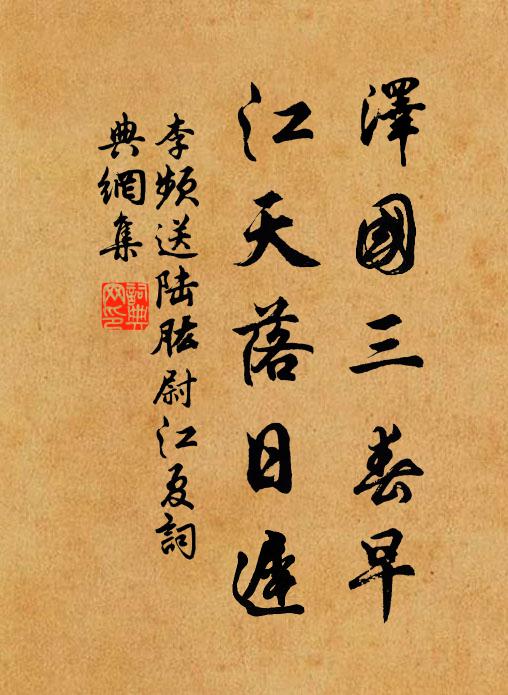 澤國三春早
江天落日遲
李頻送陸肱尉江夏詞
典網集
詞典網印